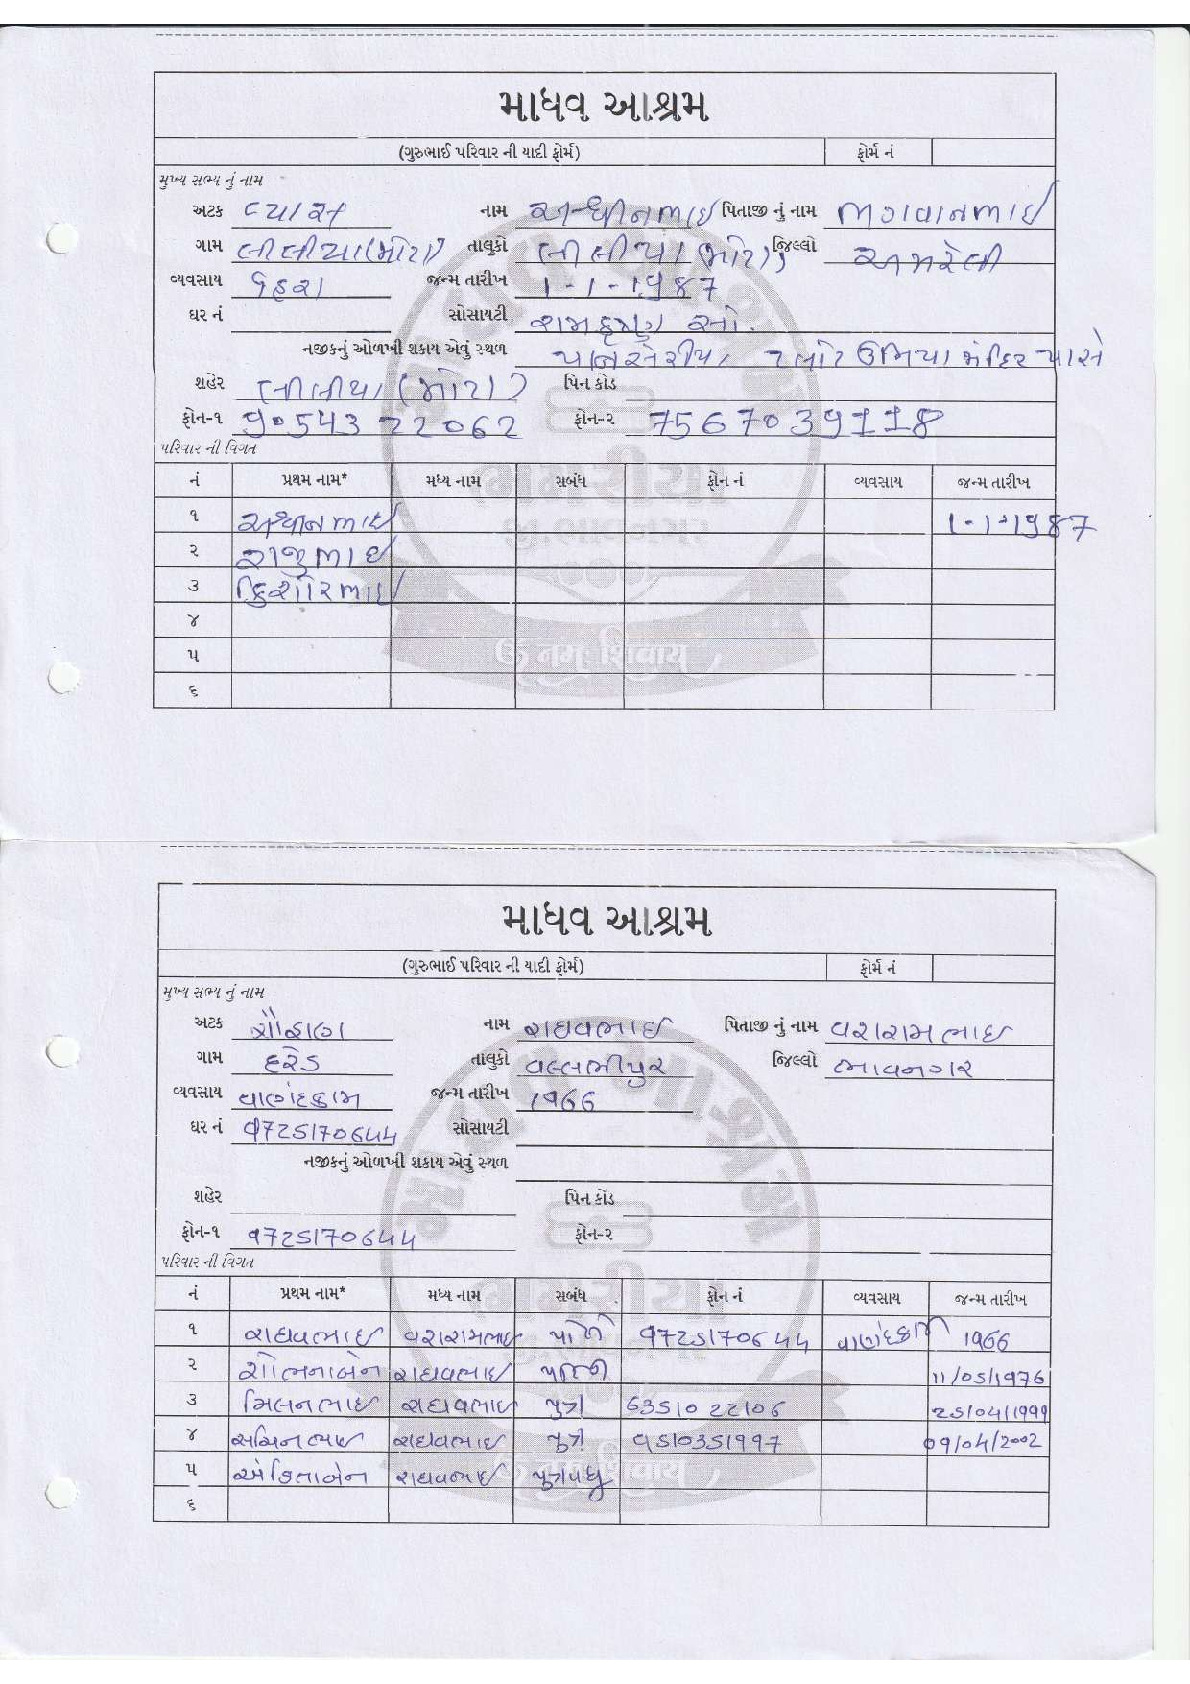 માધવ આશ્રમ
(ગુરુભાઈ પરિવાર ની યાદી ફોર્મ) ફોર્મ નં
મુખ્ય સભ્ય નું નામ
અટક વ્યાસ નામ પિતાજી નું નામ ભગવાનભાઇ
ગામ લીલીયા (મોટા) તાલુકો લીલીયા (મોટા) જિલ્લો અમરેલી
વ્યવસાય જન્મ તારીખ 1-1-1987
ઘર નં સોસાયટી રામકૃષ્ણ સો.
નજીકનું ઓળખી શકાય એવું સ્થળ પાનસેરીયા પ્લોટ ઉમિયા મંદિર પાસે
શહેર લીલીયા (મોટા) પિન કોડ
ફોન-૧ 9054322062 ફોન-૨ 7567039118
પરિવાર ની વિગત
નં પ્રથમ નામ* મધ્ય નામ સબંધ ફોન નં વ્યવસાય જન્મ તારીખ
૧ 1-1-1987
૨ રાજુભાઇ
૩ કિશોરભાઇ
૪
૫
૬
ૐ નમઃ શિવાય
માધવ આશ્રમ
(ગુરુભાઈ પરિવાર ની યાદી ફોર્મ) ફોર્મ નં
મુખ્ય સભ્ય નું નામ
અટક ચૌહાણ નામ રાઘવભાઇ પિતાજી નું નામ વશરામભાઇ
ગામ દરેડ તાલુકો વલ્લભીપુર જિલ્લો ભાવનગર
વ્યવસાય વાણંદકામ જન્મ તારીખ 1966
ઘર નં 9725170644 સોસાયટી
નજીકનું ઓળખી શકાય એવું સ્થળ
શહેર પિન કોડ
ફોન-૧ 9725170644 ફોન-૨
પરિવાર ની વિગત
નં પ્રથમ નામ* મધ્ય નામ સબંધ ફોન નં વ્યવસાય જન્મ તારીખ
૧ રાઘવભાઇ વશરામભાઇ પોતે 9725170644 વાણંદકામ 1966
૨ શોભનાબેન રાઘવભાઇ પત્ની 11/05/1976
૩ મિલનભાઇ રાઘવભાઇ પુત્ર 6351022106 25/04/1999
૪ રાઘવભાઇ પુત્ર 9510351997 09/04/2002
૫ રાઘવભાઇ પુત્રવધુ
૬
ૐ નમઃ શિવાય